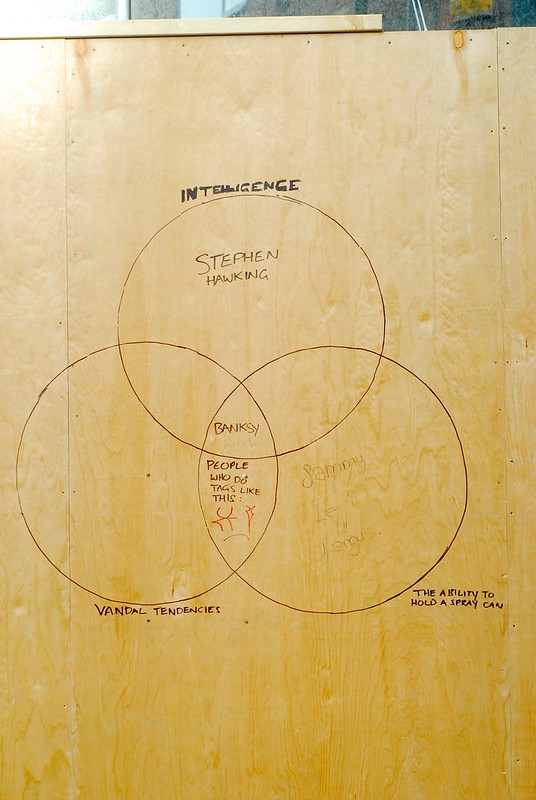 INTELLIGENCE
STEPHEN
HAWKING
BANKSY
PEOPLE
WHO DO
TAGS LIKE
THIS:
Sammy
Fergus.
VANDAL TENDENCIES
THE ABILITY TO
HOLD A SPRAY CAN